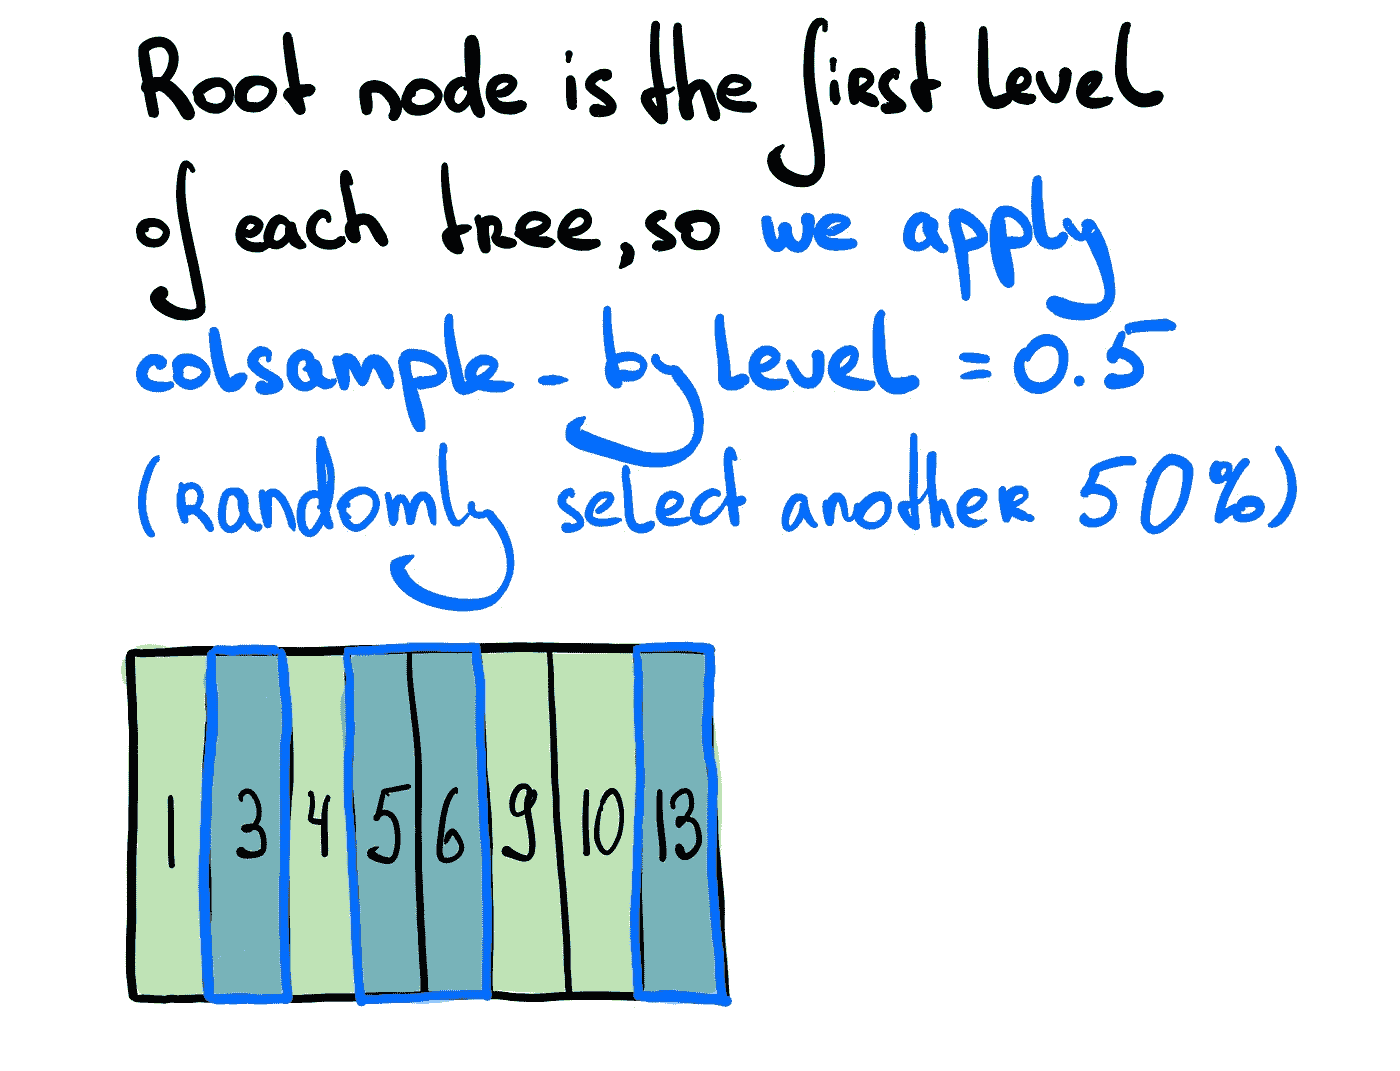 Root node is the first level
of each tree, so we apply
colsample_bylevel = 0.5
(randomly select another 50%)
1 3 4 5 6 9 10 13